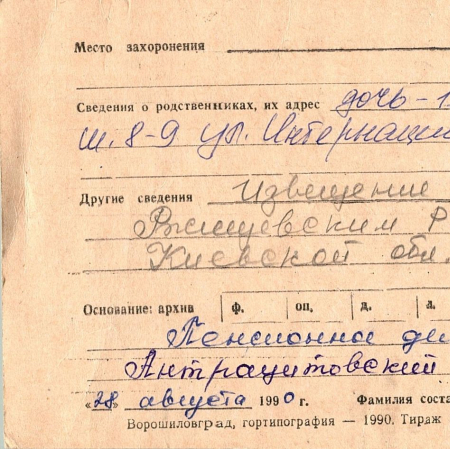 Место захоронения
Сведения о родственниках, их адрес дочь-
ш. 8-9 ул. Интернаци
Другие сведения Извещение
Ржищевским Р
Киевской обл.
Основание: архив ф. оп. д. л.
Пенсионное де
Антрацитовский
"28" августа 1990 г. Фамилия соста
Ворошиловград, гортипография — 1990. Тираж